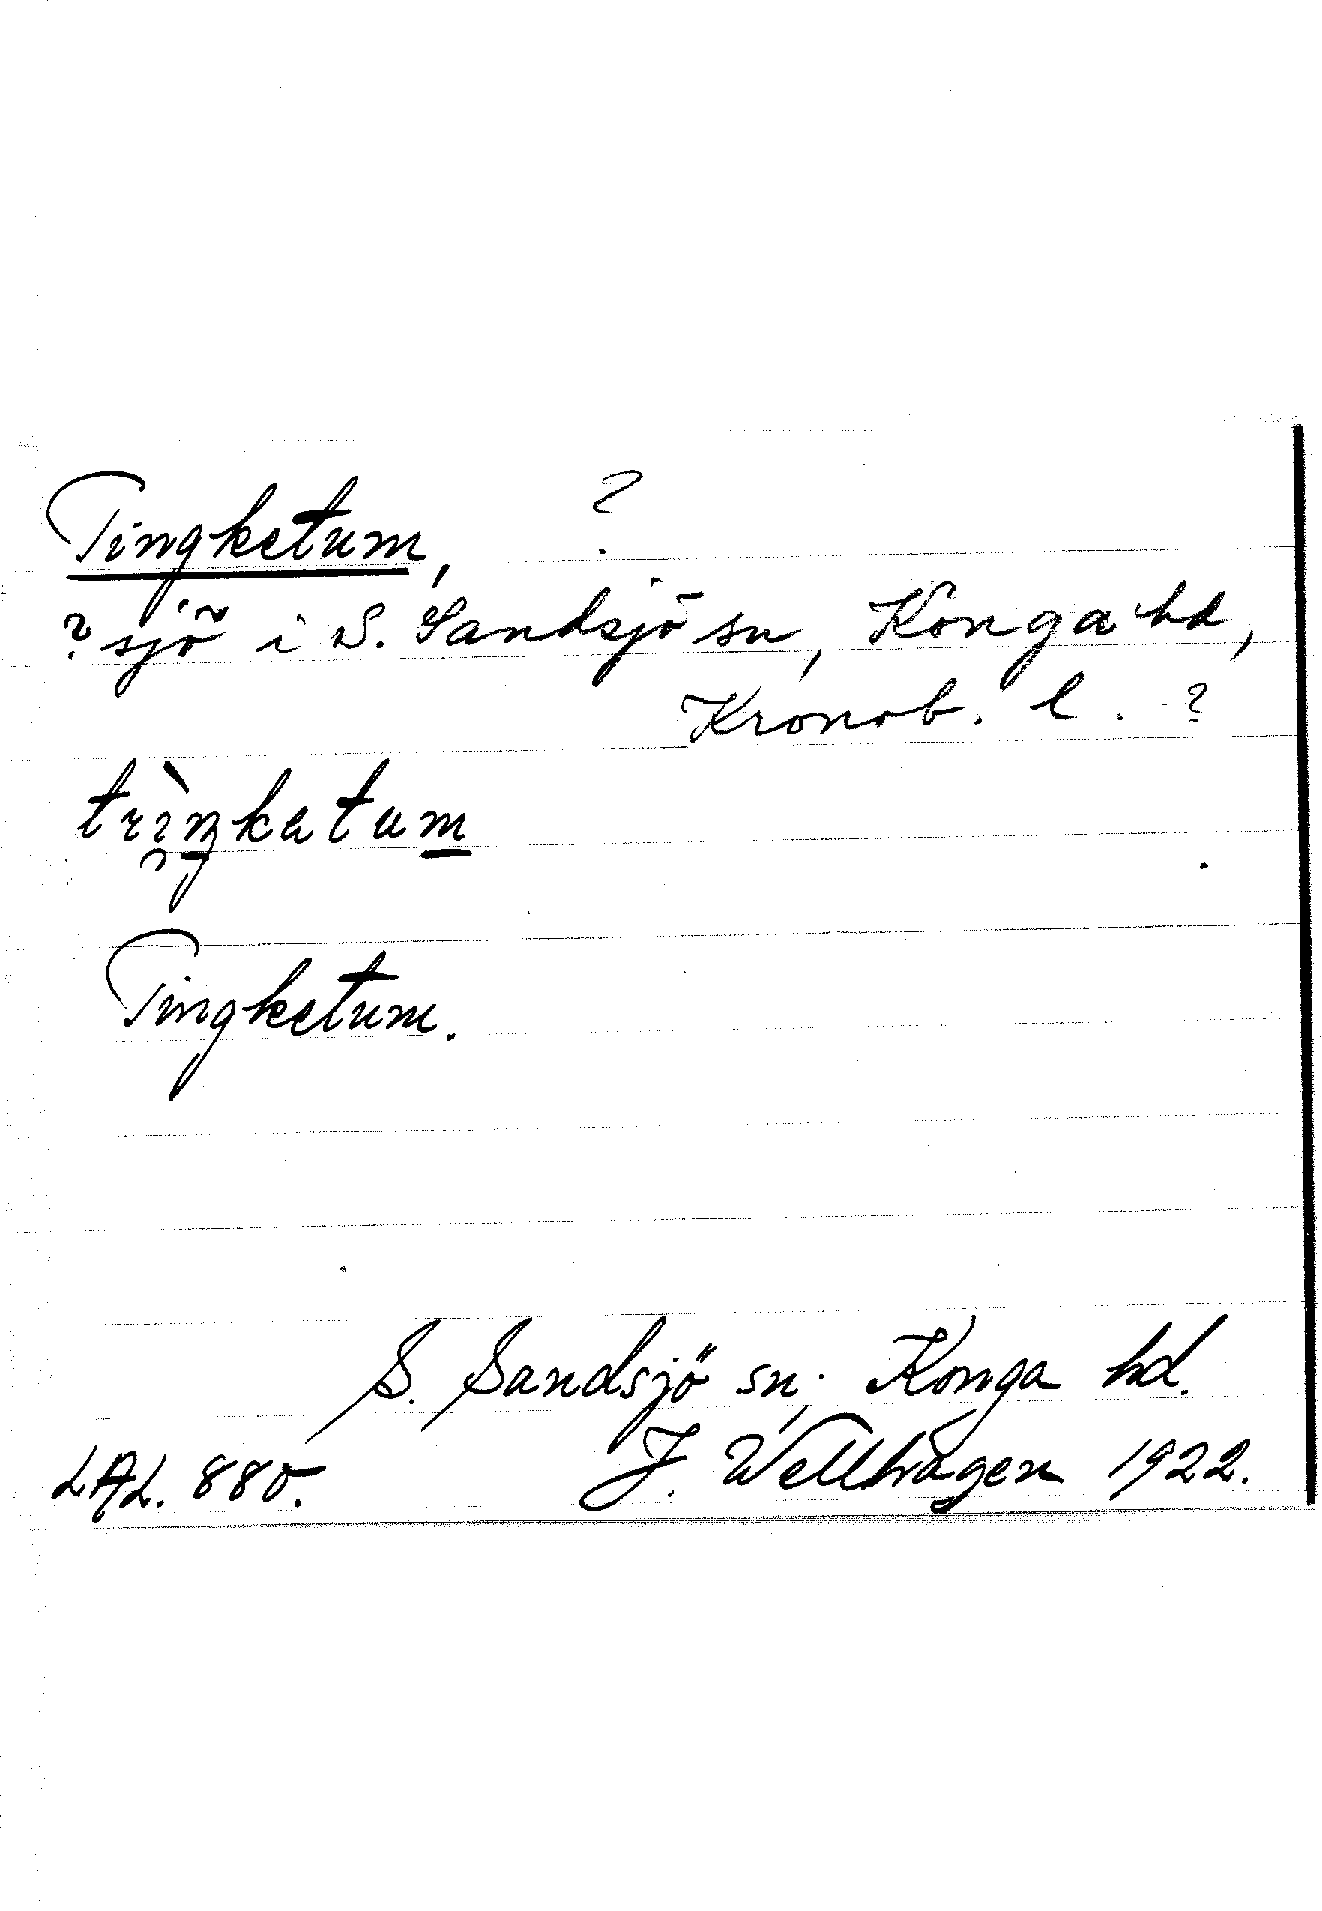 Tingketum, ?
? sjö i S. Sandsjö sn, Konga hd,
Kronob. l. ?
trìŋkatum
Tingketum.
S. Sandsjö sn. Konga hd.
LAL. 880. J. Wellhagen 1922.